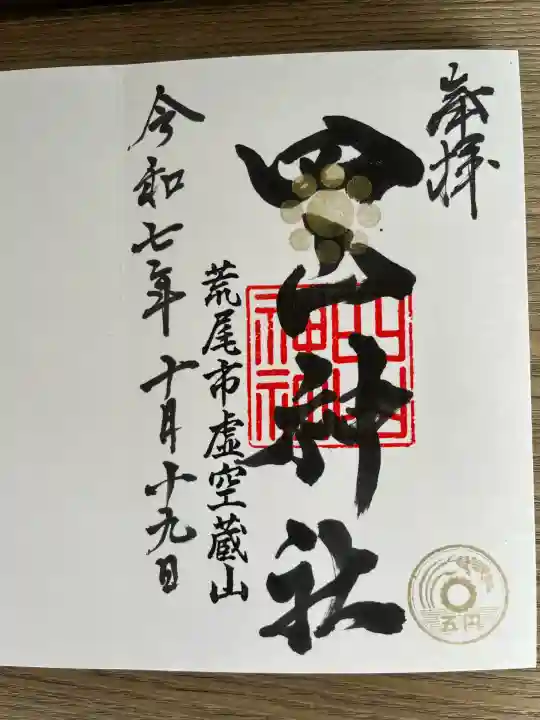 奉拝
四山神社
荒尾市虚空蔵山
令和七年十月十九日
五円